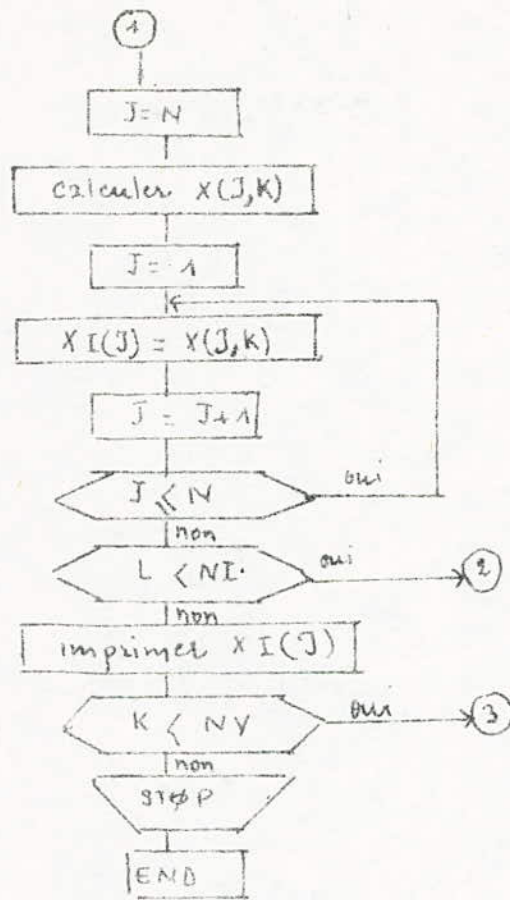 1
J = N
calculer X(J,K)
J = 1
XI(J) = X(J,K)
J = J+1
J ≤ N
oui
non
L < NI
oui
2
non
imprimer XI(J)
K < NV
oui
3
non
STØP
END